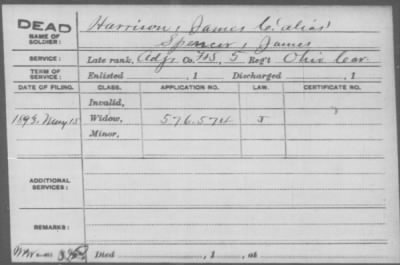 DEAD
NAME OF SOLDIER:
Harrison, James C. alias
Spencer, James
SERVICE:
Late rank, Adjt Co. F&S, 5 Reg't Ohio Cav.
TERM OF SERVICE:
Enlisted , 1 Discharged , 1
DATE OF FILING. CLASS. APPLICATION NO. LAW. CERTIFICATE NO.
Invalid,
1893, May 15 Widow, 576.574
Minor,
ADDITIONAL SERVICES:
REMARKS:
Died , 1 , at